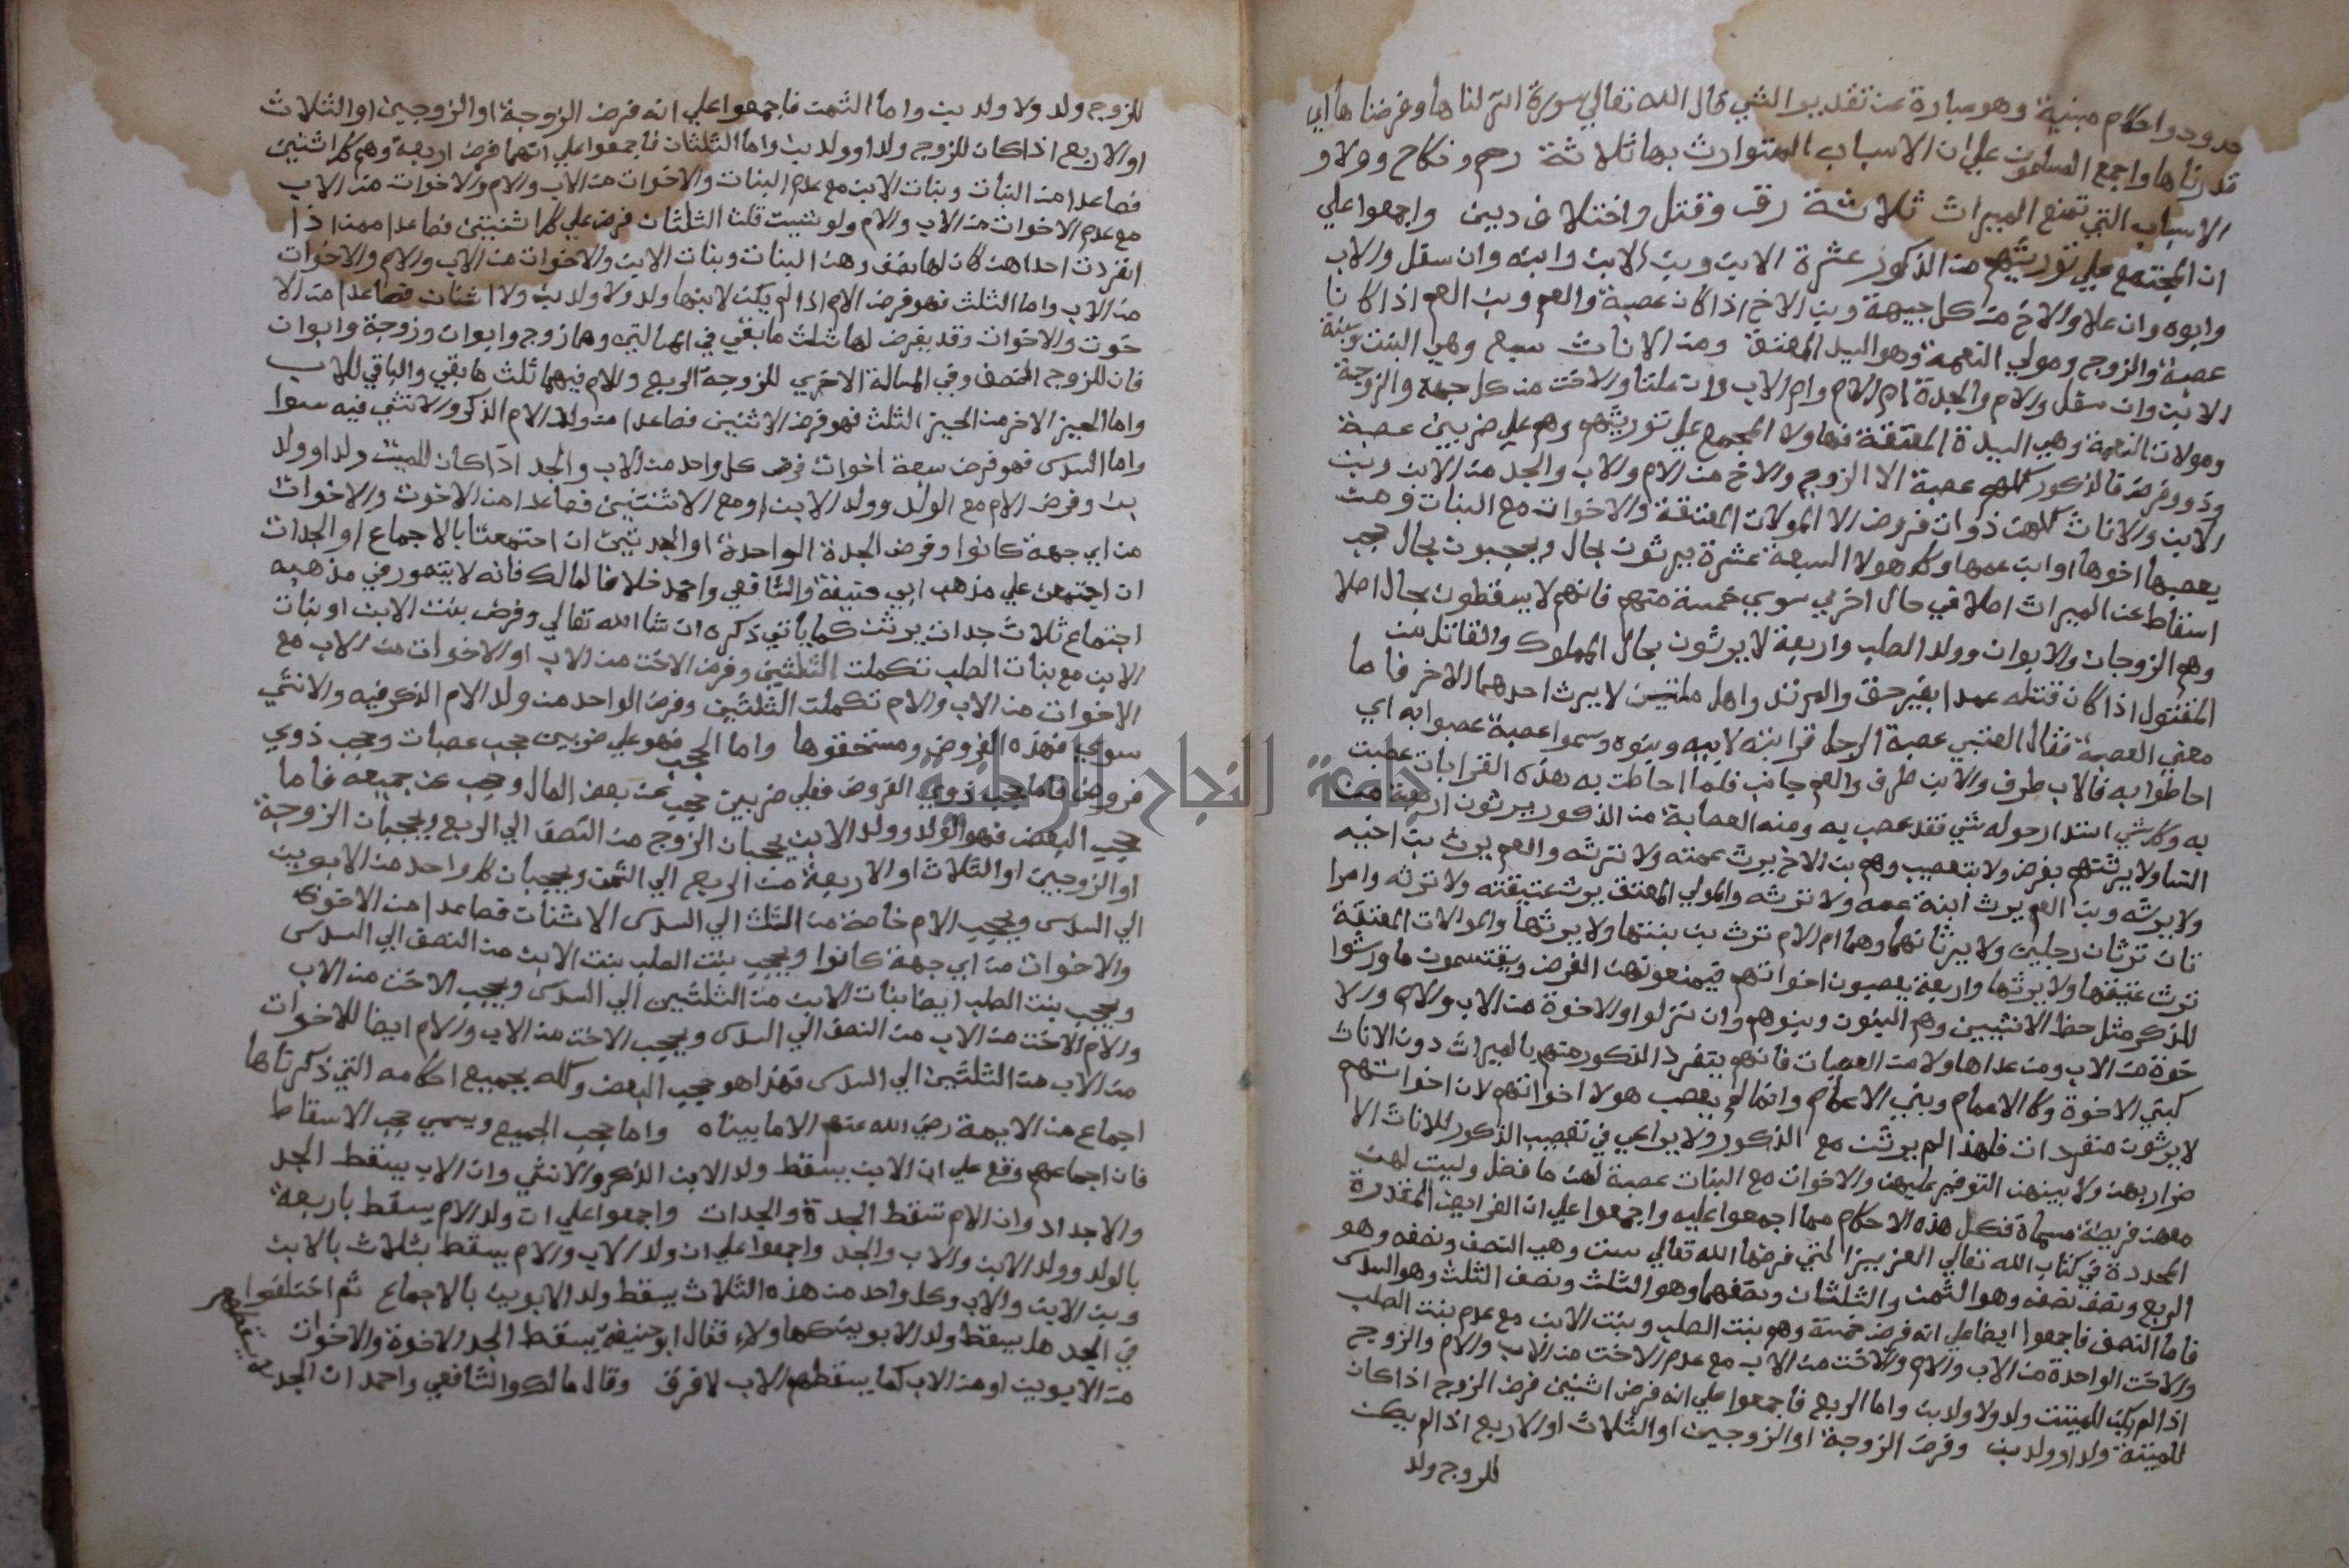 حدود واحكام مبنية وهو عبارة عن تقدير الشي قال الله تعالي سورة انزلناها وفرضناها اي
قدرناها واجمع المسلمون علي ان الاسباب المتوارث بها ثلاثة رحم ونكاح وولا و
الاسباب التي تمنع الميراث ثلاثة رق وقتل واختلاف دين واجمعوا علي
ان المجتمع علي توريثهم من الذكور عشرة الابن وبن الابن وابنه وان سفل والاب
وابوه وان علا والاخ من كل جيهة وبن الاخ اذا كان عصبة والعم وبن العم اذا كانا
عصبة والزوج ومولي النعمة وهو السيد المعتق ومن الاناث سبع وهي البنت وبنت
الابن وان سفل والام والجدة ام الام وام الاب وان علتا والاخت من كل جهة والزوجة
ومولات النعمة وهي السيدة المعتقة فهاولا المجمع علي توريثهم وهم علي ضربين عصبة
وذوو فرض فالذكور كلهم عصبة الا الزوج والاخ من الام والاب والجد من الابن وبن
الابن والاناث كلهن ذوات فروض الا المولات المعتقة والاخوات مع البنات ومن
يعصبها اخوها او ابن عمها وكل هولا السبعة عشرة يرثون بحال ويحجبون بحال حجب
اسقاط عن الميراث اصلا في حال اخري سوي خمسة منهم فانهم لا يسقطون بحال اصلا
وهم الزوجان والابوان وولد الصلب واربعة لا يرثون بحال المملوك والقاتل من
المقتول اذا كان قتله عمدا بغير حق والمرتد واهل ملتين لا يرث احدهما الاخر فاما
معني العصبة فقال العتبي عصبة الرجل قرابته لابيه وبنوه وسموا عصبة عصبوا به اي
احاطوا به فالاب طرف والابن طرف والعم جانب فلما احاطت به هذه القرابات عصبت
به وكل شي استدار حوله شي فقد عصب به ومنه العصابة من الذكور يرثون اربعة من
النسا ولا يرثنهم بفرض ولا بتعصيب وهم بن الاخ يرث عمته ولا ترثه والعم يرث بنت اخيه
ولا يرثه وبن العم يرث ابنة عمه ولا ترثه والمولي المعتق يرث عتيقته ولا ترثه وامرا
تان ترثان رجلين ولا يرثانهما وهما ام الام ترث بن بنتها ولا يرثها والمولات المعتقة
ترث عتيقها ولا يرثها واربعة يعصبون اخواتهم فيمنعونهن الفرض ويقتسمون ما ورثوا
للذكر مثل حظ الانثيين وهم البنون وبنوهم وان نزلوا والاخوة من الاب والام والا
خوة من الاب ومن عدا هاولا من العصبات فانهم يتفرد الذكور منهم بالميراث دون الاناث
كبني الاخوة وكالاعمام وبني الاعمام وانما لم يعصب هولا اخواتهم لان اخواتهم
لا يرثون منفردات فلهذا لم يرثن مع الذكور ولا يراعي في تعصيب الذكور للاناث الا
ضرار بهن ولا بينهن التوفير عليهن والاخوات مع البنات عصبة لهن ما فضل وليست لهن
معهن فريضة مسماة فكل هذه الاحكام مما اجمعوا عليه واجمعوا علي ان الفرايض المقدرة
المحددة في كتاب الله تعالي العزيز التي فرضها الله تعالي ست وهي النصف ونصفه وهو
الربع ونصف نصفه وهو الثمن والثلثان ونصفهما وهو الثلث ونصف الثلث وهو السدس
فاما النصف فاجمعوا ايضا علي انه فرض خمسة وهو بنت الصلب وبنت الابن مع عدم بنت الصلب
والاخت الواحدة من الاب والام والاخت من الاب مع عدم الاخت من الاب والام والزوج
اذا لم يكن للميتت ولد ولا ولد بن واما الربع فاجمعوا علي انه فرض اثنين فرض الزوج اذا كان
للميتة ولد او ولد بن وفرض الزوجة او الزوجين او الثلاث او الاربع اذا لم يكن
للزوج ولد
للزوج ولد ولا ولد بن واما الثمن فاجمعوا علي انه فرض الزوجة او الزوجين او الثلاث
او الاربع اذا كان للزوج ولد او ولد بن واما الثلثان فاجمعوا علي انهما فرض اربعة وهم كل اثنين
فصاعدا من البنات وبنات الابن مع عدم البنات والاخوات من الاب والام والاخوات من الاب
مع عدم الاخوات من الاب والام ولو شييت قلت الثلثان فرض علي كل اثنيتين فصاعدا ممن اذا
انفردت احداهن كان لها نصف وهن البنات وبنات الابن والاخوات من الاب والام والاخوات
من الاب واما الثلث فهو فرض الام اذا لم يكن لابنها ولد ولا ولد بن ولا اثنان فصاعدا من الا
خوت والاخوات وقد يفرض لها ثلث ما بقي في المسالتين وهما زوج وابوان وزوجة وابوان
فان للزوج النصف وفي المسالة الاخري للزوجة الربع وللام فيهما ثلث ما بقي والباقي للاب
واما الحيز الاخر من الحيز الثلث فهو فرض الاثنين فصاعدا من ولد الام الذكر والانثي فيه سوا
واما السدس فهو فرض سبعة اخوات فرض كل واحد من الاب والجد اذا كان للميت ولد او ولد
بن وفرض الام مع الولد وولد الابن او مع الاثنتين فصاعدا من الاخوت والاخوات
من اي جهة كانوا وفرض الجدة الواحدة او الجدتين ان اجتمعتا بالاجماع او الجدات
ان اجتمعن علي مذهب ابي حنيفة والشافعي واحمد خلافا لمالك فانه لا يتصور في مذهبه
اجتماع ثلاث جدات يرثن كما ياتي ذكره ان شا الله تعالي وفرض بنت الابن او بنات
الابن مع بنات الصلب تكملت الثلثين وفرض الاخت من الاب او الاخوات من الاب مع
الاخوات من الاب والام تكملت الثلثين وفرض الواحد من ولد الام الذكر فيه والانثي
سوي فهذه الفروض ومستحقوها واما الحجب فهو علي ضربين حجب عصبات وحجب ذوي
فروض فاما حجب ذوي الفروض فعلي ضربين حجب عن بعض المال وحجب عن جميعه فاما
حجب البعض فهو الولد وولد الابن يحجبان الزوج من النصف الي الربع ويحجبان الزوجة
او الزوجين او الثلاث او الاربعة من الربع الي الثمن ويحجبان كل واحد من الابوين
الي السدس ويحجب الام خاصة من الثلث الي السدس الاثنان فصاعدا من الاخوة
والاخوات من اي جهة كانوا ويحجب بنت الصلب بنت الابن من النصف الي السدس
ويحجب بنت الصلب ايضا بنات الابن من الثلثين الي السدس ويحجب الاخت من الاب
والام الاخت من الاب من النصف الي السدس ويحجب الاخت من الاب والام ايضا للاخوات
من الاب من الثلثين الي السدس فهذا هو حجب البعض وكله بجميع احكامه التي ذكرناها
اجماع من الايمة رضي الله عنهم الا ما بيناه واما حجب الجميع ويسمي حجب الاسقاط
فان اجماعهم وقع علي ان الابن يسقط ولد الابن الذكر والانثي وان الاب يسقط الجد
والاجداد وان الام تسقط الجدة والجدات واجمعوا علي ان ولد الام يسقط باربعة
بالولد وولد الابن والاب والجد واجمعوا علي ان ولد الاب والام يسقط بثلاث بالابن
وبن الابن والاب وكل واحد من هذه الثلاث يسقط ولد الابوين بالاجماع ثم اختلفوا
في الجد هل يسقط ولد الابوين كهاولاء فقال ابو حنيفة يسقط الجد الاخوة والاخوات
من الابوين او من الاب كما يسقطهم الاب لا فرق وقال مالك والشافعي واحمد ان الجد لا
يسقطهم
جامعة النجاح الوطنية